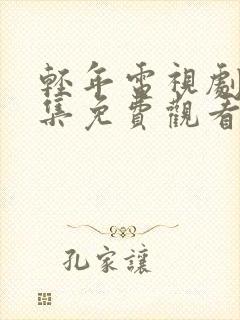 輕年電視劇
集免費觀看
孔家讓